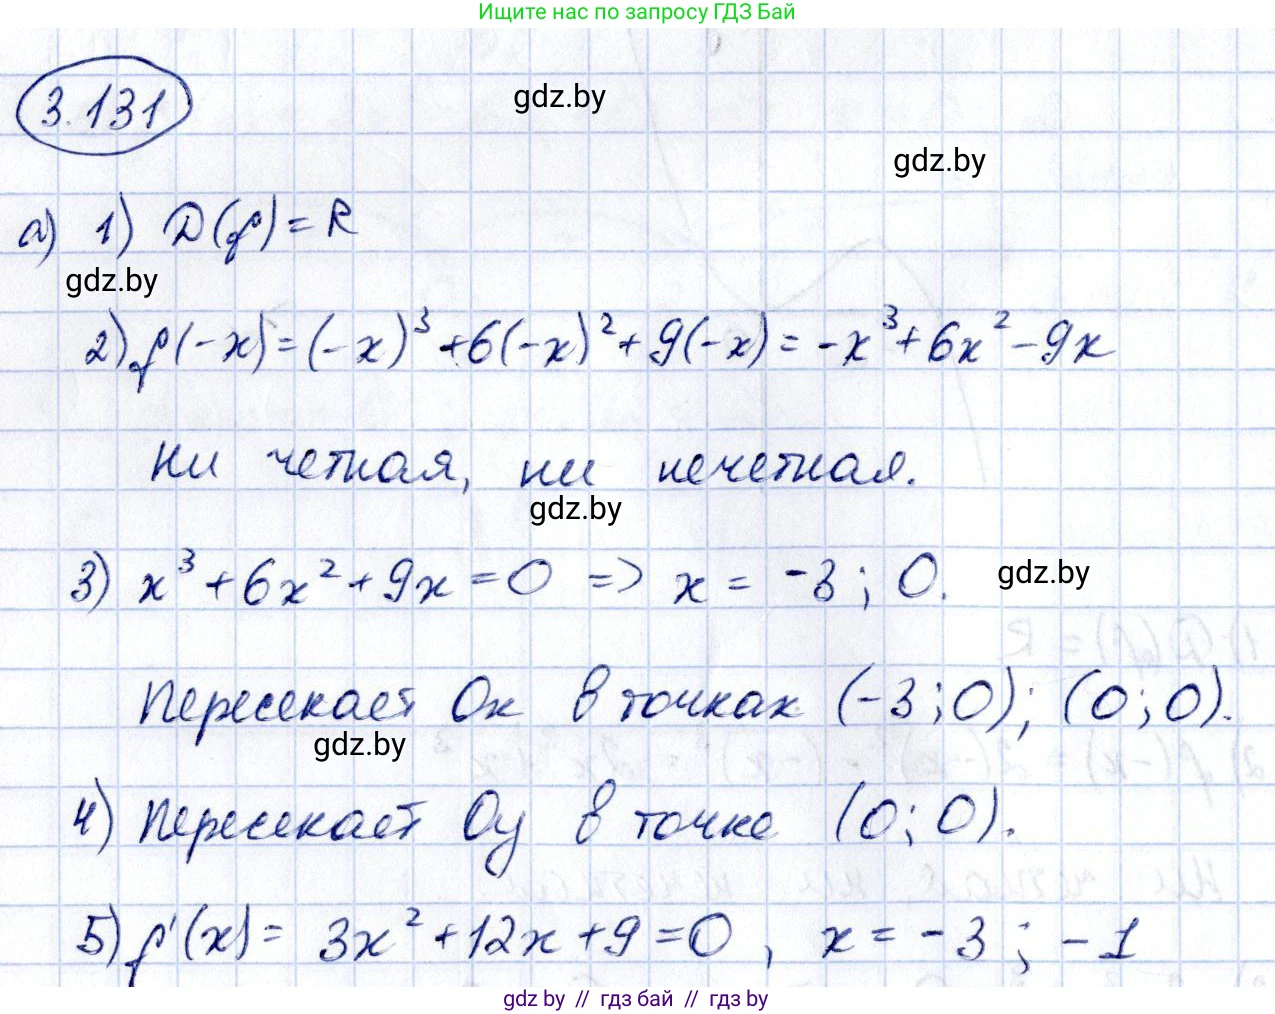 Ищите нас по запросу ГДЗ Бай
3.131
gdz.by
gdz.by
а) 1) D(f) = R
gdz.by
2) f(-x) = (-x)³ + 6(-x)² + 9(-x) = -x³ + 6x² - 9x
Ни четная, ни нечетная.
gdz.by
3) x³ + 6x² + 9x = 0 => x = -3; 0.
gdz.by
Пересекает Ox в точках (-3; 0); (0; 0).
gdz.by
4) Пересекает Oy в точке (0; 0).
5) f'(x) = 3x² + 12x + 9 = 0, x = -3; -1
gdz.by // гдз бай // гдз by